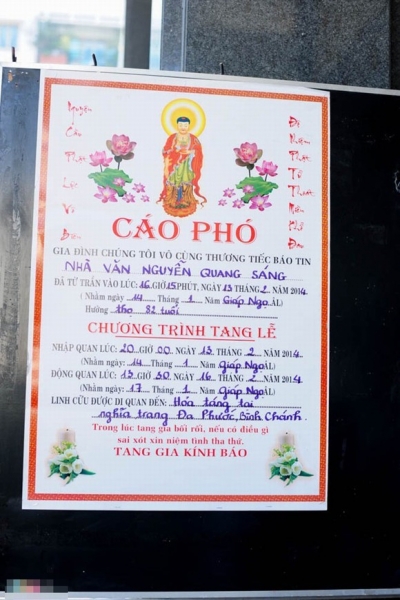 Nguyện
Cầu
Phật
Lực
Vô
Biên
Độ
Phật
Tử
Thoát
Miền
Khổ
Đau
CÁO PHÓ
GIA ĐÌNH CHÚNG TÔI VÔ CÙNG THƯƠNG TIẾC BÁO TIN
NHÀ VĂN NGUYỄN QUANG SÁNG
ĐÃ TỪ TRẦN VÀO LÚC: 16 GIỜ 15 PHÚT, NGÀY 13 THÁNG 2 NĂM 2014
( Nhằm ngày 14 Tháng 1 Năm Giáp Ngọ ÂL)
Hưởng thọ 82 tuổi
CHƯƠNG TRÌNH TANG LỄ
NHẬP QUAN LÚC: 20 GIỜ 00 NGÀY 13 THÁNG 2 NĂM 2014
(Nhằm ngày: 14 Tháng 1 Năm Giáp Ngọ ÂL)
ĐỘNG QUAN LÚC: 13 GIỜ 30 NGÀY 16 THÁNG 2 NĂM 2014
(Nhằm ngày: 17 Tháng 1 Năm Giáp Ngọ ÂL)
LINH CỮU ĐƯỢC DI QUAN ĐẾN: Hỏa táng tại
nghĩa trang Đa Phước, Bình Chánh
Trong lúc tang gia bối rối, nếu có điều gì
sai xót xin niệm tình tha thứ.
TANG GIA KÍNH BÁO